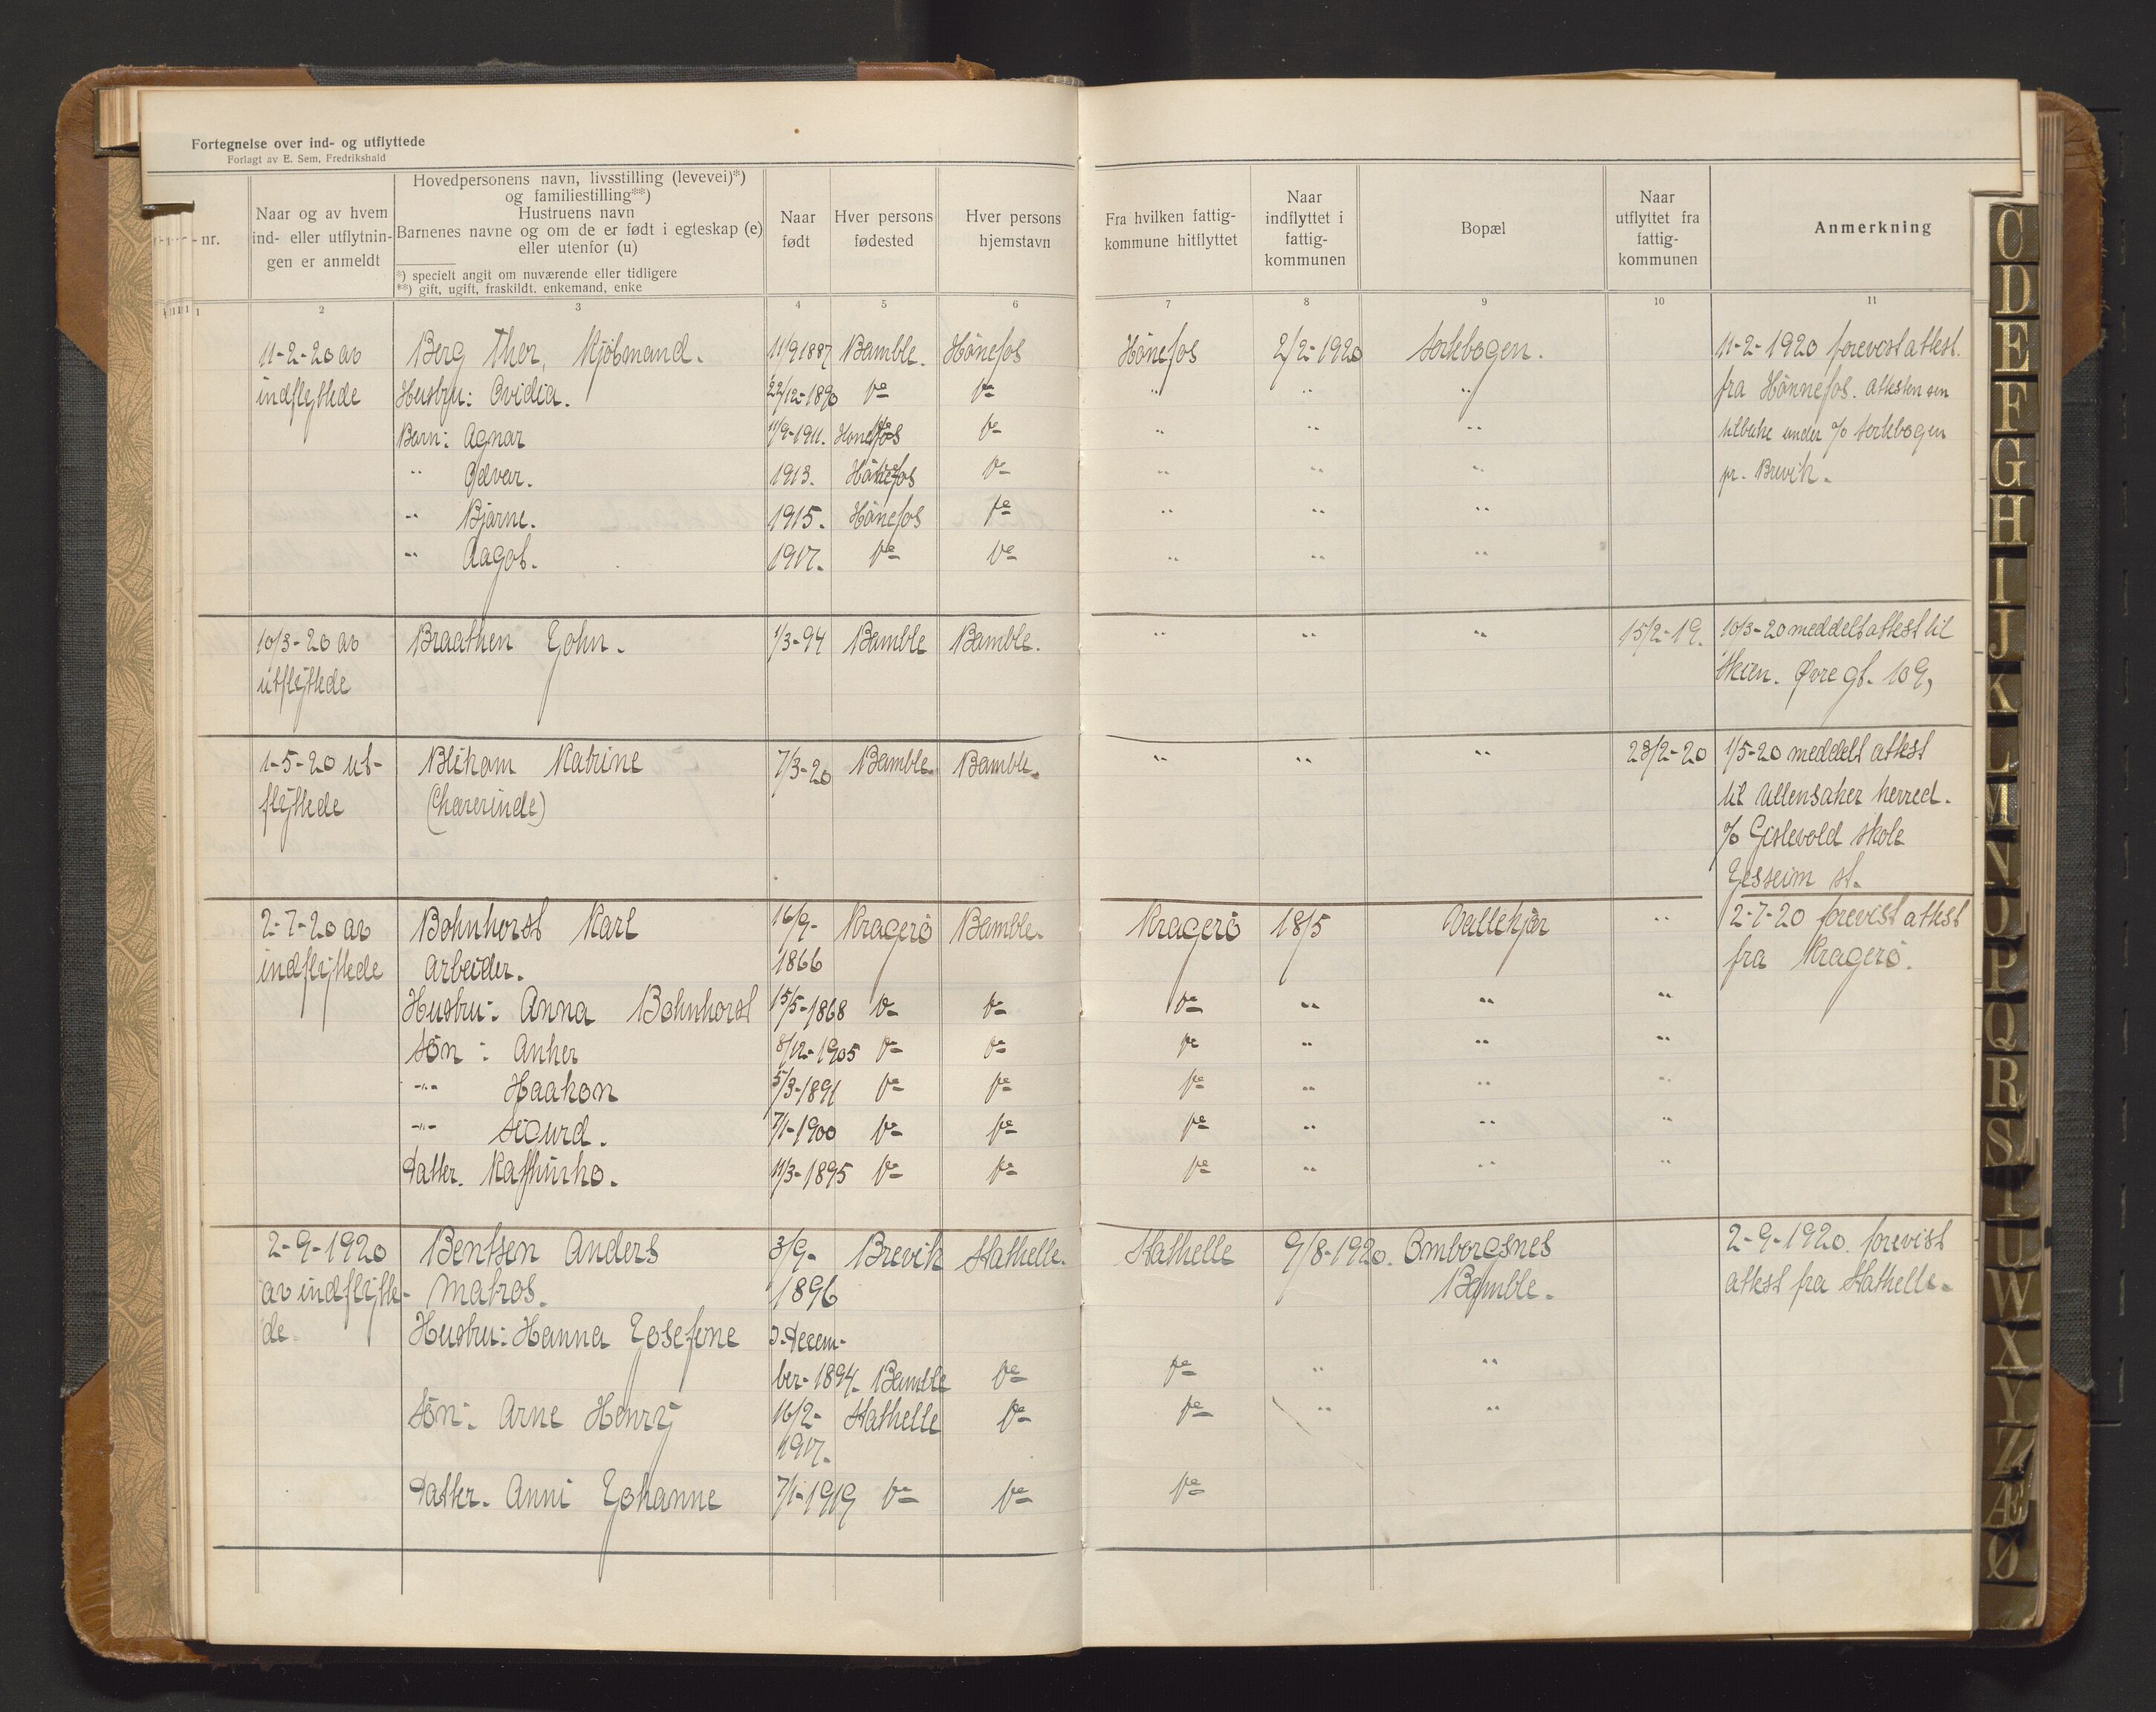 Fortegnelse over ind- og utflyttede
Forlagt av E. Sem, Fredrikshald
nr.
Naar og av hvem ind- eller utflytnin- gen er anmeldt
Hovedpersonens navn, livsstilling (levevei)*)
og familiestilling**)
Hustruens navn
Barnenes navne og om de er født i egteskap (e)
eller utenfor (u)
*) specielt angit om nuværende eller tidligere
**) gift, ugift, fraskildt, enkemand, enke
Naar født
Hver persons fødested
Hver persons hjemstavn
Fra hvilken fattig- kommune hitflyttet
Naar indflyttet i fattig- kommunen
Bopæl
Naar utflyttet fra fattig- kommunen
Anmerkning
1 2 3 4 5 6 7 8 9 10 11
11-2-20 av Berg Thor, Kjöbmand. 11/9 1887 Bamble. Hönefos Hönefos 2/2-1920 Sorkbogen. 11-2-1920 forevist attest.
indflyttede Hustru: Ovidia. 22/12-1890 do do " " " fra Hönnefos. attesten sen
Barn: Agnar 11/9-1911. Honefos do " " " tilbake under % Sorkbogen
" Edvar. 1913. Hönefos do " " " pr. Brevik.
" Bjarne. 1915. Hönefos do " " "
" Aagot. 1917. do do " " "
10/3-20 av Braathen John. 1/3-94 Bamble Bamble. " " " 15/2-19. 10/3-20 meddelt attest til
utflyttede Skien. Øvre gt. 109,
1-5-20 ut- Blikom Katrine 7/3-20 Bamble. Bamble. " " " 23/2-20 1/5-20 meddelt attest
flyttede (Lærerinde) til Ullensaker herred.
% Gislevold skole
Jesseim st.
2-7-20 av Bohnhorst Karl 16/9- Kragerö Bamble. Kragerö 18/5 Vallekjær " 2-7-20 forevist attest
indflyttede arbeider. 1866 fra Kragerö.
Hustru: Anna Bohnhorst 15/5-1868 do do do " " "
Sön: Anker 8/12-1905 do do do " " "
" Haakon 5/3-1891 do do do " " "
" Sigurd. 7/1-1900 do do do " " "
Datter. 11/3-1895 do do do " " "
2-9-1920 Bentsen Anders 3/9- Brevik Stathelle. Stathelle 9/8-1920. Omborgsnes 2-9-1920. forevist
av indflytte- Matros. 1896 Bamble. attest fra Stathelle.
de. Hustru: Hanna Josefine Decem-
ber-1894. Bamble do do " "
Sön: Arne Henry 16/2- Stathelle do do " "
1917.
Datter. Anni Johanne 7/1-1919 do do do
C
D
E
F
G
H
I
J
K
L
M
N
O
P
Q
R
S
T
U
W
X
Y
Z
Æ
Ø